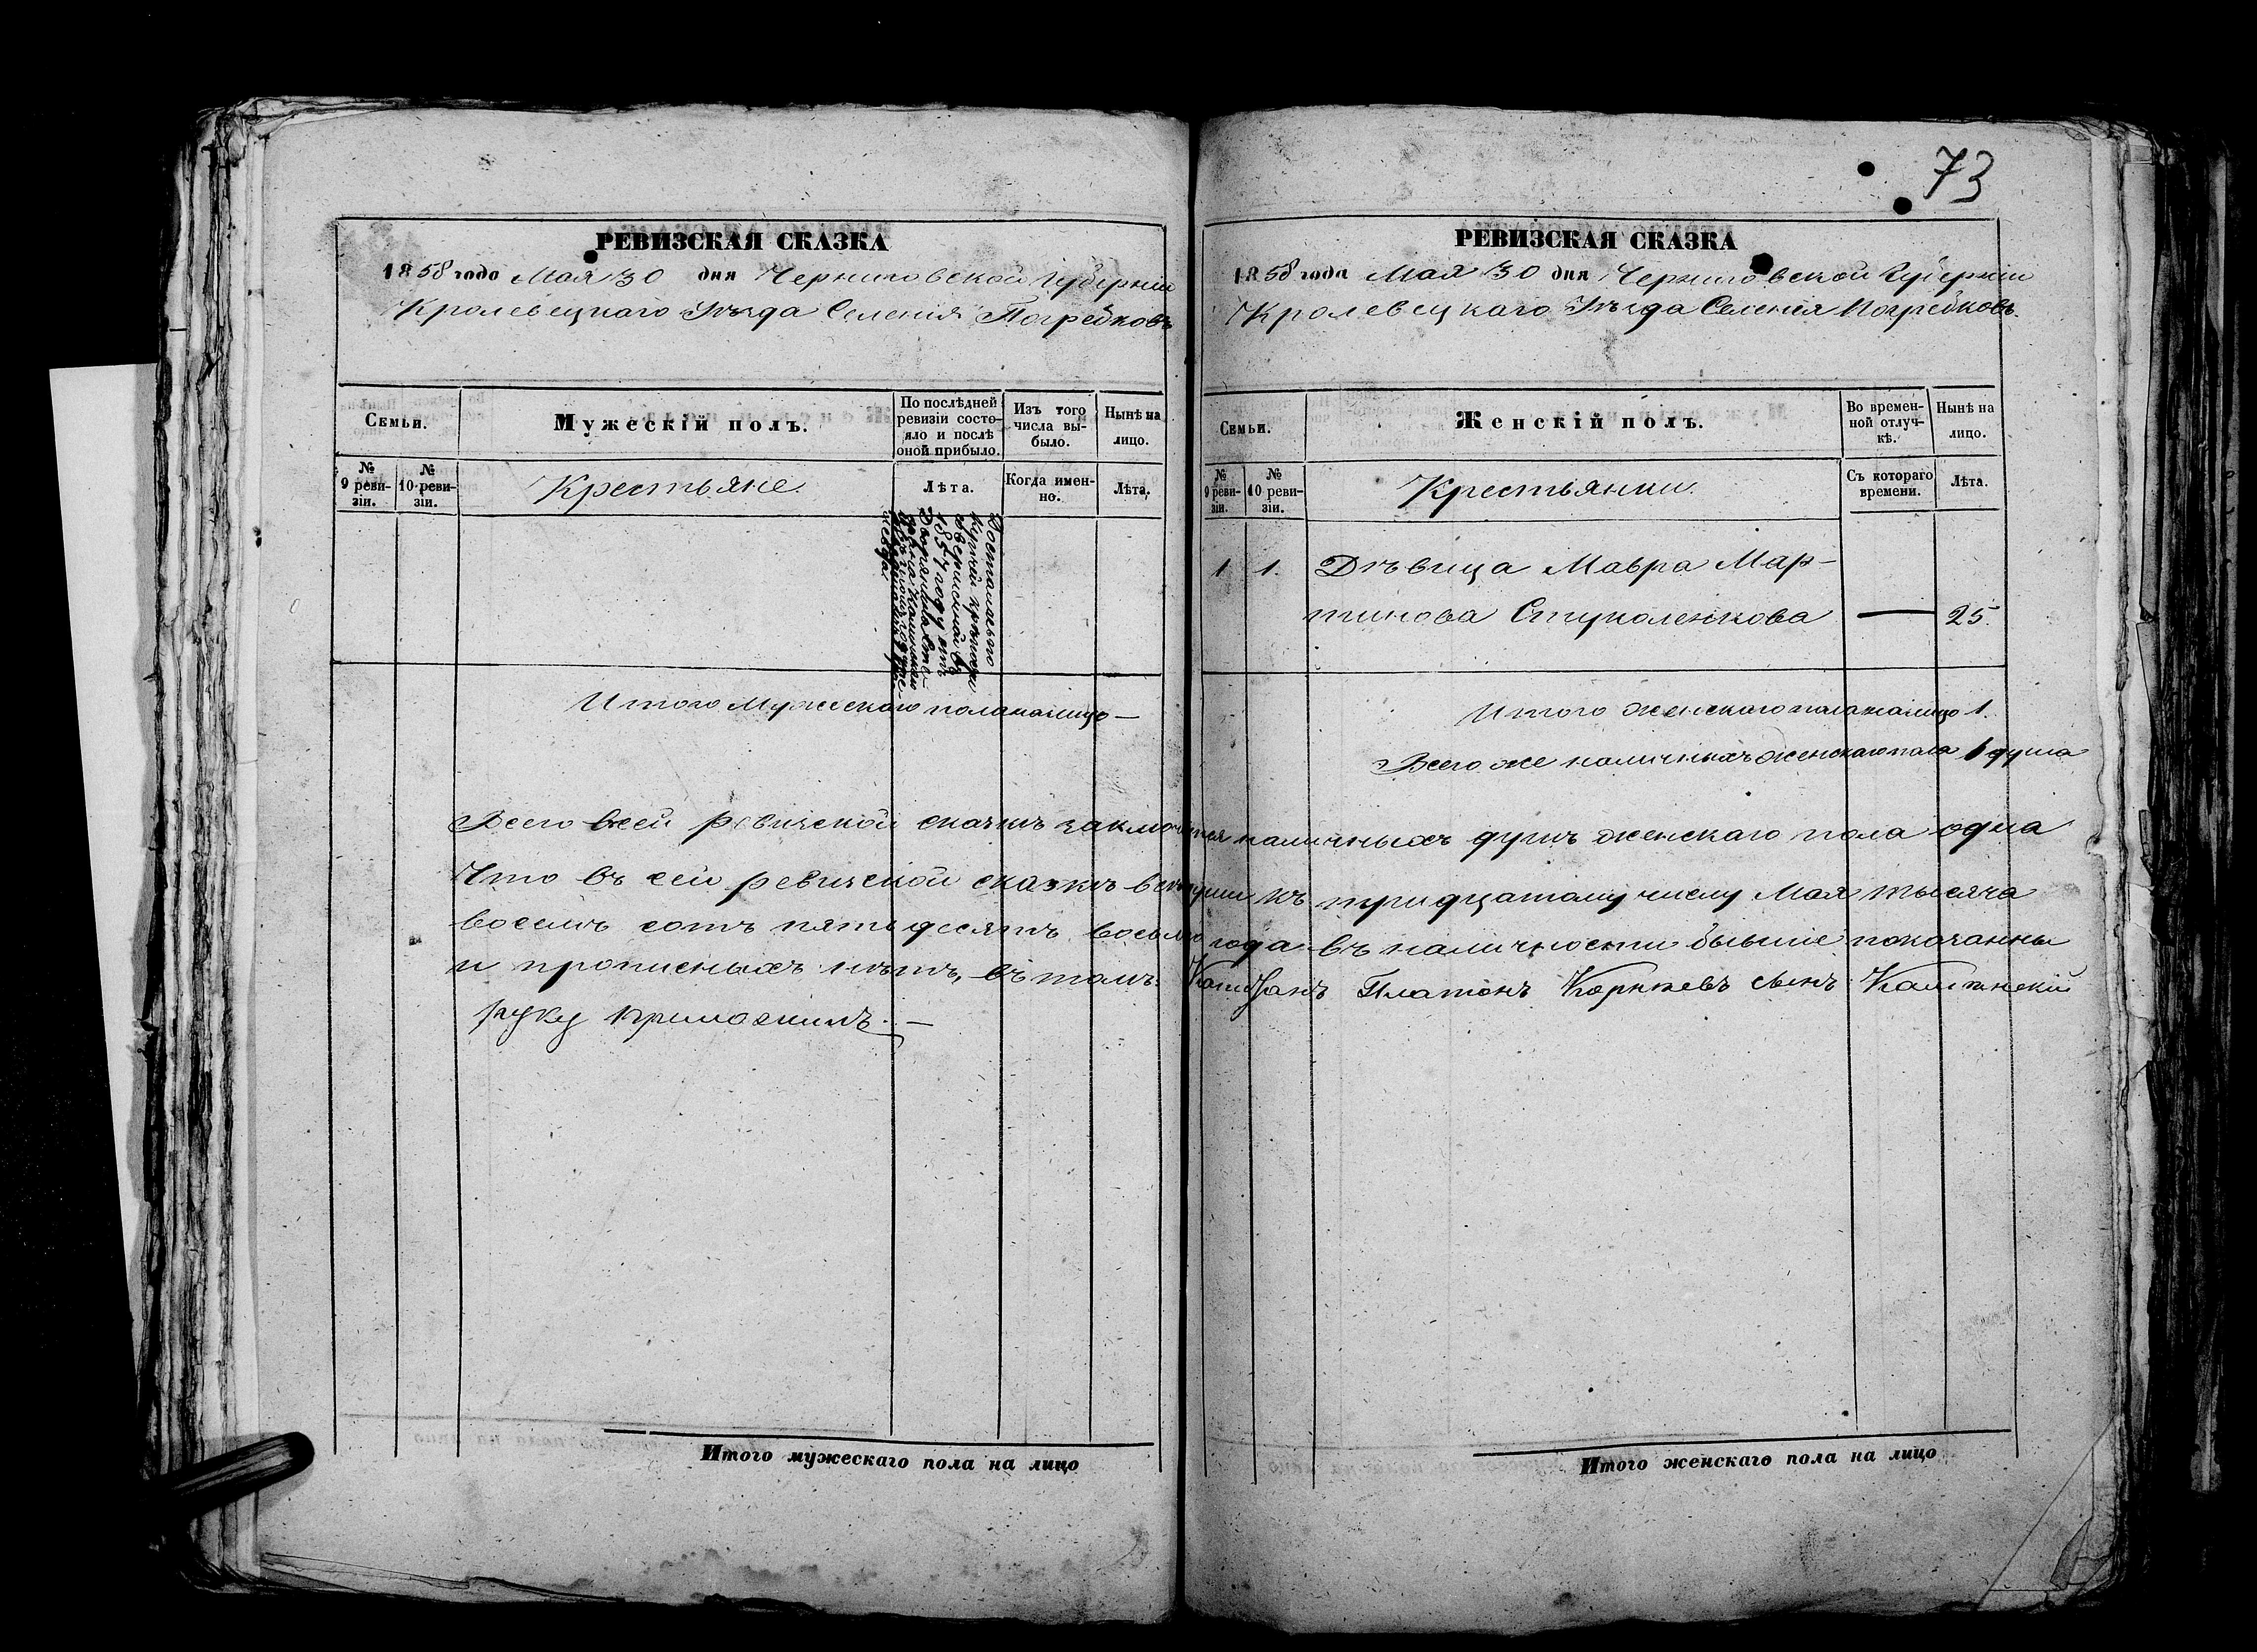 73
РЕВИЗСКАЯ СКАЗКА
1858 года Мая 30 дня Черниговской Губерніи
Кролевецкаго Уѣзда Селенія Погребковъ
Семьи.
Мужескій полъ.
По послѣдней ревизіи состо-
яло и послѣ
оной прибыло.
Изъ того
числа вы-
было.
Нынѣ на
лицо.
№
9 реви-
зіи.
№
10 реви-
зіи.
Крестьяне
Лѣта.
Когда имен-
но.
Лѣта.
Доставшаго
купчей крѣпости
1857 году отъ
Итого Мужескаго пола налицо —
РЕВИЗСКАЯ СКАЗКА
1858 года Мая 30 дня Черниговской Губерніи
Кролевецкаго Уѣзда Селенія Погребковъ.
Семьи.
Женскій полъ.
Во времен-
ной отлуч-
кѣ.
Нынѣ на
лицо.
№
9 реви-
зіи.
№
10 реви-
зіи.
Крестьянки.
Съ котораго
времени.
Лѣта.
1 1. Дѣвица Мавра Мар-
тинова Ступаленкова — 25.
Итого женскаго пола налицо 1.
Всего же наличныхъ женскаго пола 1 душа
Всего в сей ревизской сказкѣ заключается наличныхъ душъ женскаго пола одна
Что въ сей ревизской сказкѣ всѣ души къ тридцатому числу Мая тысяча
восемь сотъ пятьдесятъ восьмого года въ наличности бывшіе показанны
и прописныхъ нѣтъ, въ томъ Платонъ Корнѣевъ сынъ
руку приложилъ. —
Итого мужескаго пола на лицо
Итого женскаго пола на лицо